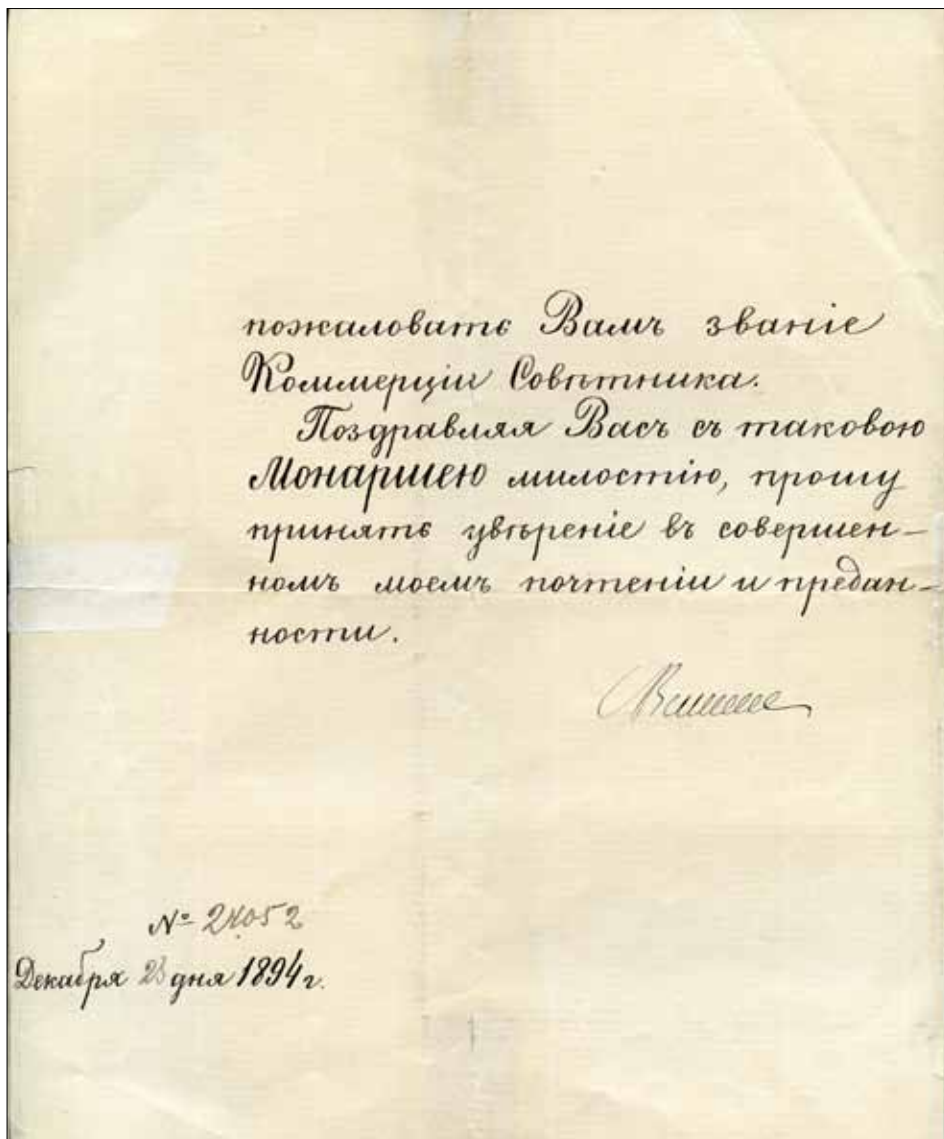 пожаловать Вамъ званіе
Коммерціи Совѣтника.
Поздравляя Васъ съ таковою
Монаршею милостію, прошу
принять увѣреніе въ совершен-
номъ моемъ почтеніи и предан-
ности.
№ 24052
Декабря 23 дня 1894 г.